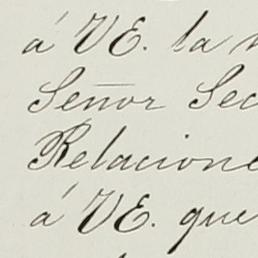 á VE. la
Señor Sec
Relacione
á VE. que